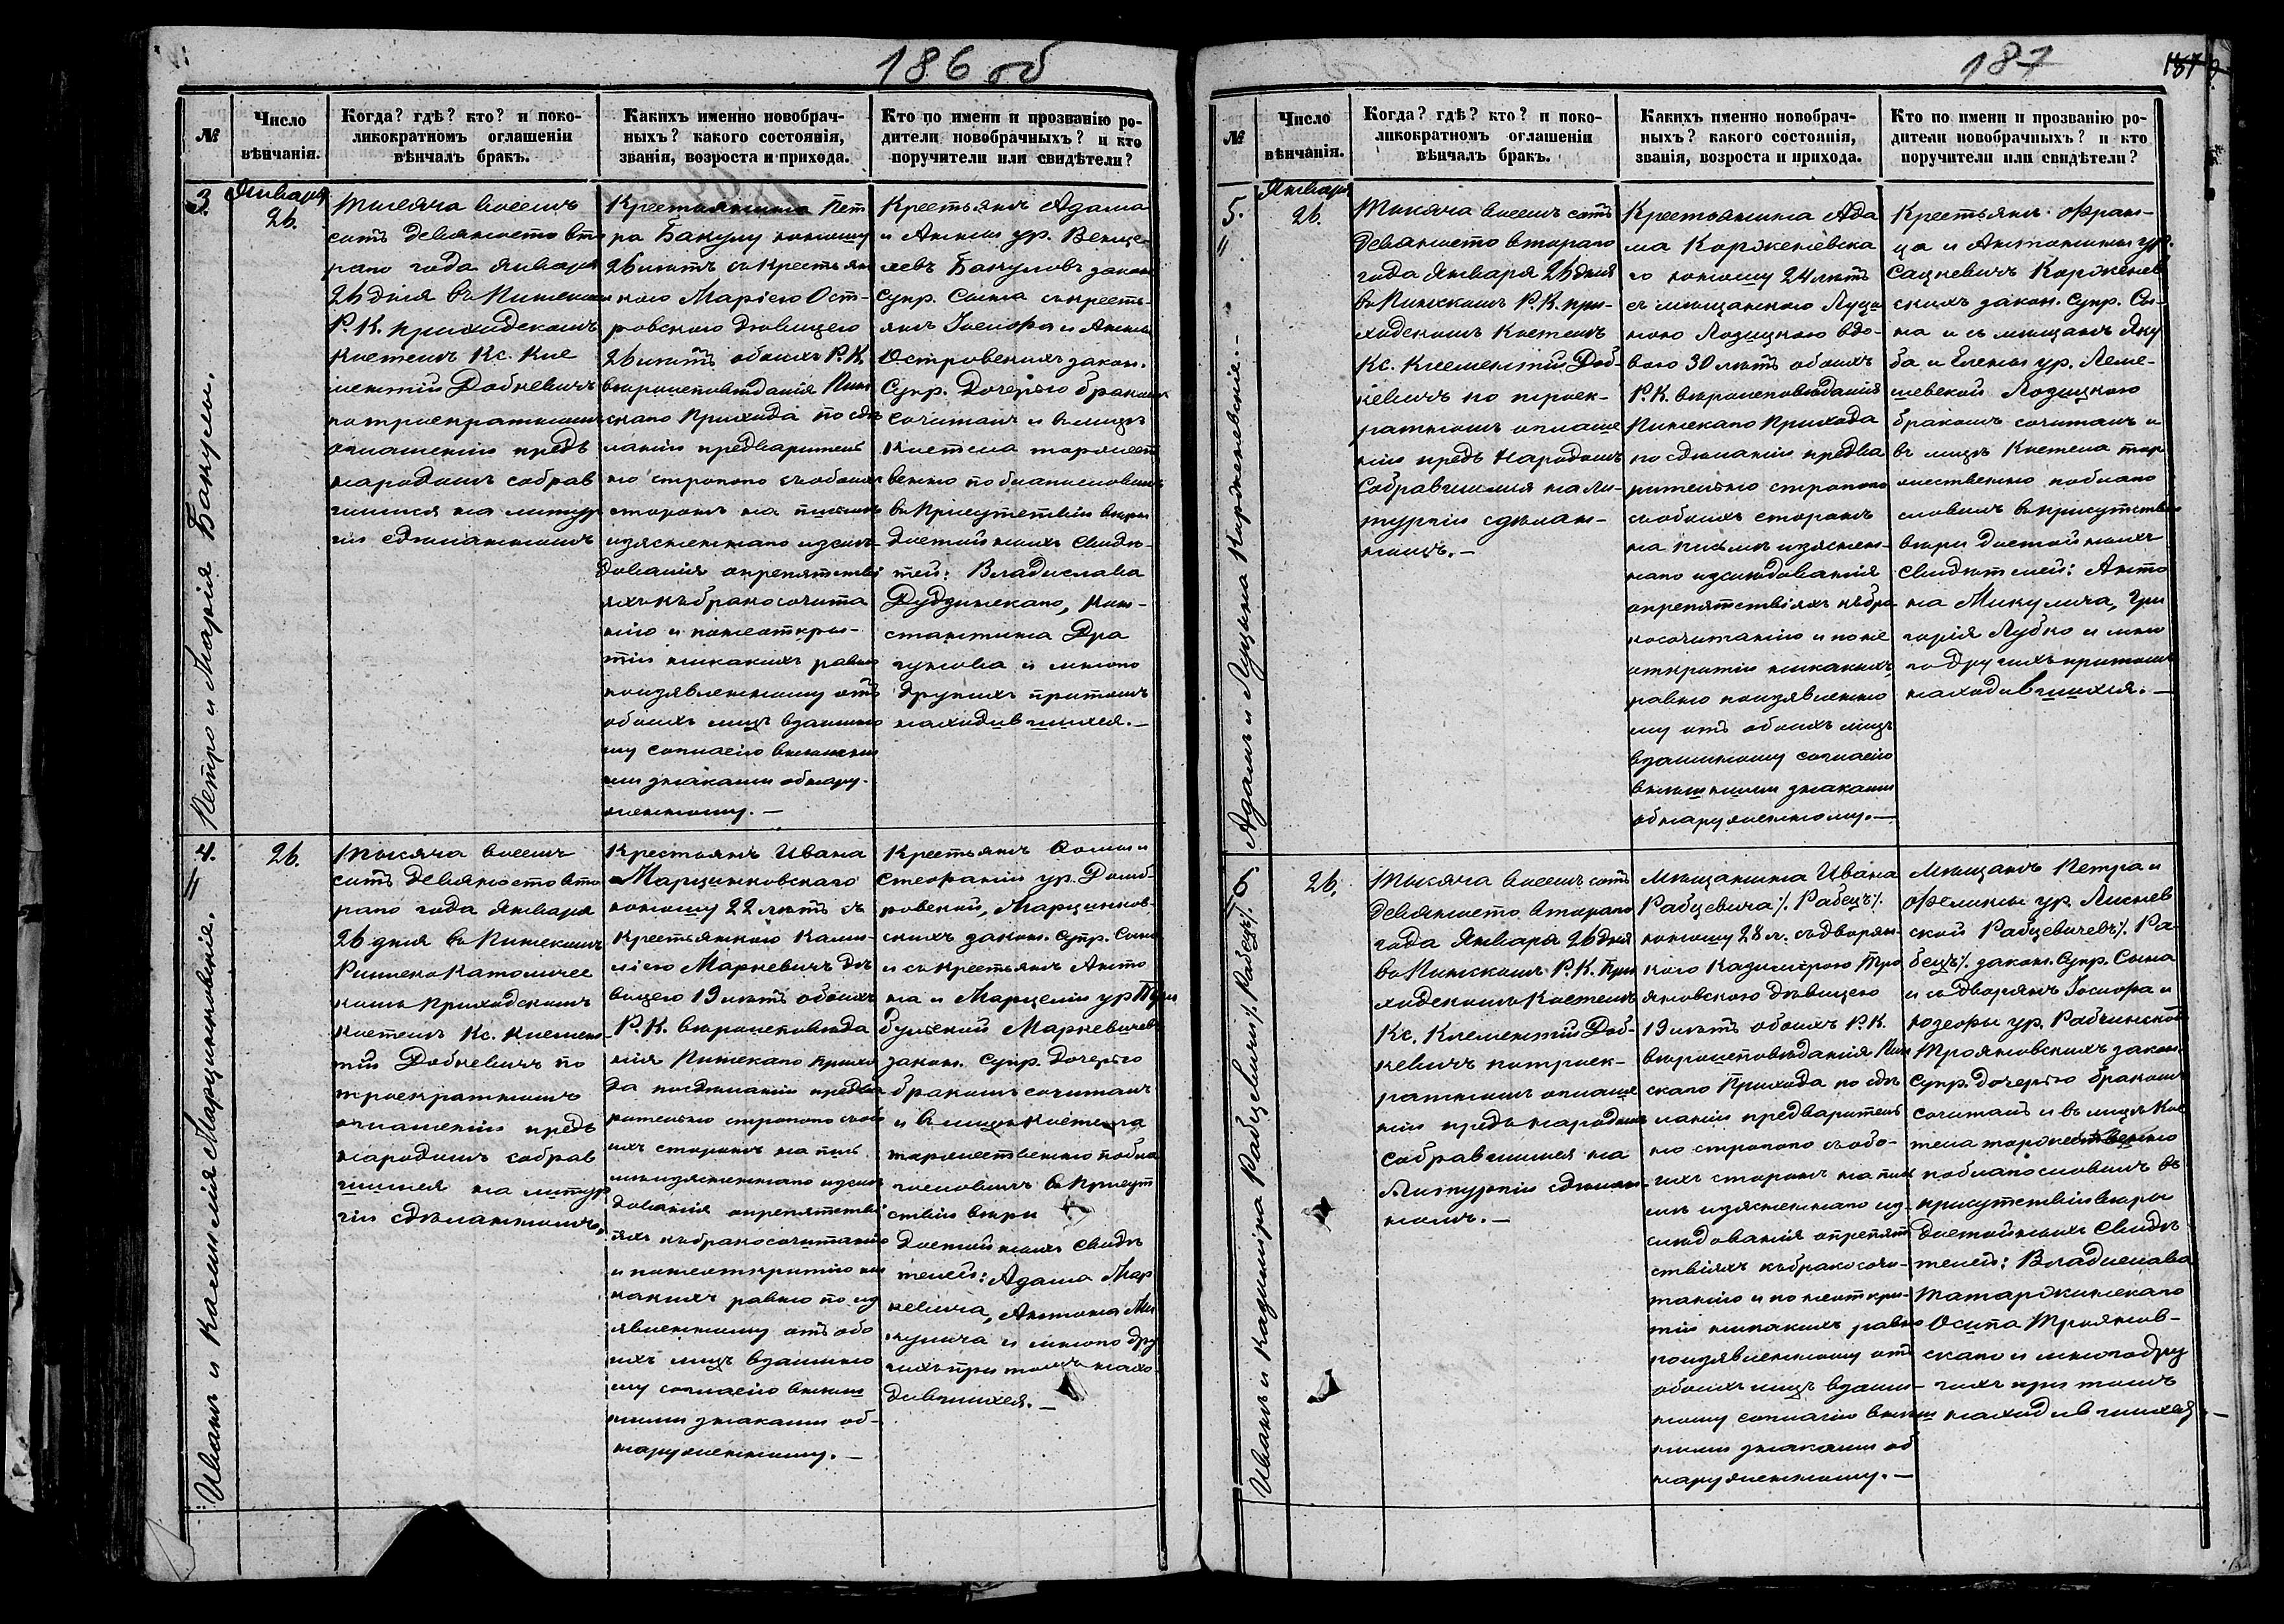 186 об
№
Число
вѣнчанія.
Когда? гдѣ? кто? и поко-
ликократномъ оглашеніи
вѣнчалъ бракъ.
Какихъ именно новобрач-
ныхъ? какого состоянія,
званія, возроста и прихода.
Кто по имени и прозванію ро-
дители новобрачныхъ? и кто
поручители или свидѣтели?
3.
Петро и Марія Бакулы.
Января
26.
Тысяча восемь
сотъ девяносто вто
раго года Января
26 дня въ Пинском
Р. К. приходскомъ
костелѣ Кс. Кле
ментій Добкевичъ
по троекратномъ
оглашеніи предъ
народомъ собрав
шимся на литур
гіи сдѣланномъ
Крестьянина Пет
ра Бакулу юношу
26 лѣтъ съ крестьян
кою Маріею Ост-
ровскою дѣвицею
26 лѣтъ обоихъ Р. К.
вѣроисповѣданія Пин
скаго прихода по сдѣ
ланіи предваритель
но строгого съ обоихъ
сторонъ на письмѣ
изясненнаго изслѣ
дованія опрепятстві
яхъ къ бракосочета
нію и понеоткры-
тіи никакихъ равно
поизявленному отъ
обоихъ лицъ взаимно
му согласію внѣшни
ми знаками обнару-
женному. —
Крестьянъ Адама
и Анны ур. Венцке
левъ Бакуловъ закон
супр. Сына съ кресть-
янъ Іосифа и Анны
Островскихъ закон.
Супр. Дочерью бракомъ
сочиталъ и въ лицѣ
костела торжест
венно поблагословилъ
въ присутствіи вѣры
достойныхъ свидѣ-
телей: Владислава
Дудзинскаго, Кон-
стантина Дра
гунова и много
другихъ притомъ
находившихся. —
4.
Иванъ и Камилія Марцинковскія.
26.
Тысяча восемь
сотъ девяносто вто
раго года Января
26 дня въ Пинскомъ
Римско Католичес
комъ приходскомъ
костелѣ Кс. Клемен
тій Добкевичъ по
троекратномъ
оглашеніи предъ
народомъ собрав
шимся на литур
гіи сдѣланномъ.
Крестьянъ Ивана
Марцинковскаго
юношу 22 лѣтъ съ
крестьянкою Ками-
ліею Маркевичъ дѣ
вицею 19 лѣтъ обоихъ
Р. К. вѣроисповѣда
нія Пинскаго прихо
да посдѣланіи предва
рительно строгого съобо
ихъ сторонъ на пись
мѣ изясненнаго изслѣ
дованія опрепятстві
яхъ къ бракосочитанію
и понеоткрытію ни
какихъ равно по из
явленному отъ обо
ихъ лицъ взаимно
му согласію внѣш
ними знаками об-
наруженному. —
Крестьянъ Ѳомы и
Стефаніи ур. Домб-
ровской, Марцинков-
скихъ закон. супр. Сына
и съ крестьянъ Анто
на и Марцеліи ур
Маркевичей
закон. Супр. Дочерью
бракомъ сочиталъ
и въ лицѣ костела
торжественно побла
гословилъ въ присут
ствіи вѣры
достойныхъ свидѣ
телей: Адама Мар
кевича, Антона Ми
кулича и много дру
гихъ при томъ нахо
дившихся. —
187
187
№
Число
вѣнчанія.
Когда? гдѣ? кто? и поко-
ликократномъ оглашеніи
вѣнчалъ бракъ.
Какихъ именно новобрач-
ныхъ? какого состоянія,
званія, возроста и прихода.
Кто по имени и прозванію ро-
дители новобрачныхъ? и кто
поручители или свидѣтели?
5.
Адамъ и Луцына Корженевскіе. —
Января
26.
Тысяча восемь сотъ
девяносто втораго
года Января 26 дня
въ Пинскомъ Р. К. при-
ходскомъ костелѣ
Кс. Клементій Доб-
кевичъ по троек-
ратномъ оглаше
ніи предъ народомъ
собравшимся на ли-
тургіи сдѣлан-
номъ. —
Крестьянина Ада
ма Корженевска
го юношу 24 лѣтъ
съ мѣщанкою Луцы
ною Лозицкою вдо-
вою 30 лѣтъ обоихъ
Р. К. вѣроисповѣданія
Пинскаго прихода
по сдѣланіи предва
рительно строгого
съ обоихъ сторонъ
на письмѣ изяснен-
наго изслѣдованія
опрепятствіяхъ къ бра
косочитанію и поне
открытіи никакихъ
равно поизявленно
му отъ обоихъ лицъ
взаимному согласію
внѣшними знаками
обнаруженному. —
Крестьянъ Фран-
ца и Антонины ур.
Сацкевичъ Корженев
скихъ закон. Супр. Сы-
на и съ мѣщанъ Яку
ба и Елены ур. Леме-
шевской Лозицкою
бракомъ сочиталъ и
въ лицѣ костела тор
жественно поблаго
словилъ въ присутствіи
вѣры достойныхъ
Свидѣтелей: Анто
на Микулича, Гри
горія Лубко и мно
го другихъ притомъ
находившихся. —
6.
Иванъ и Казиміра Рабцевичи /. Рабецъ /.
26.
Тысяча восемь сотъ
девяносто втораго
года Января 26 дня
въ Пинскомъ Р. К. При
ходскомъ костелѣ
Кс. Клементій Доб-
кевичъ потроек-
ратномъ оглаше
ніи предъ народомъ
собравшимся на
Литургіи сдѣлан-
номъ. —
Мѣщанина Ивана
Рабцевича /. Рабецъ /.
юношу 28 л. съ дворян-
кою Казимірою Тро
яновскою дѣвицею
19 лѣтъ обоихъ Р. К.
вѣроисповѣданія Пин
скаго Прихода по сдѣ
ланіи предваритель
но строгого съ обо-
ихъ сторонъ на пись
мѣ изясненнаго из-
слѣдованія опрепят
ствіяхъ къ бракосочи-
танію и по неоткры-
тіи никакихъ равно
поизявленному отъ
обоихъ лицъ взаим-
ному согласію внѣш
ними знаками об
наруженному. —
Мѣщанъ Петра и
Фелины ур. Лиснев
ской Рабцевичевъ /. Ра
бецъ /. закон. Супр. Сына
и съ дворянъ Іосифа и
Юзефы ур. Рабчинской
Трояновскихъ закон.
Супр. дочерью бракомъ
сочиталъ и въ лицѣ кос
тела торжественно
поблагословилъ въ
присутствіи вѣры
достойныхъ Свидѣ
телей: Владислава
Татаржинскаго
Осипа Трояновс-
каго и много дру
гихъ при томъ
находившихся. —